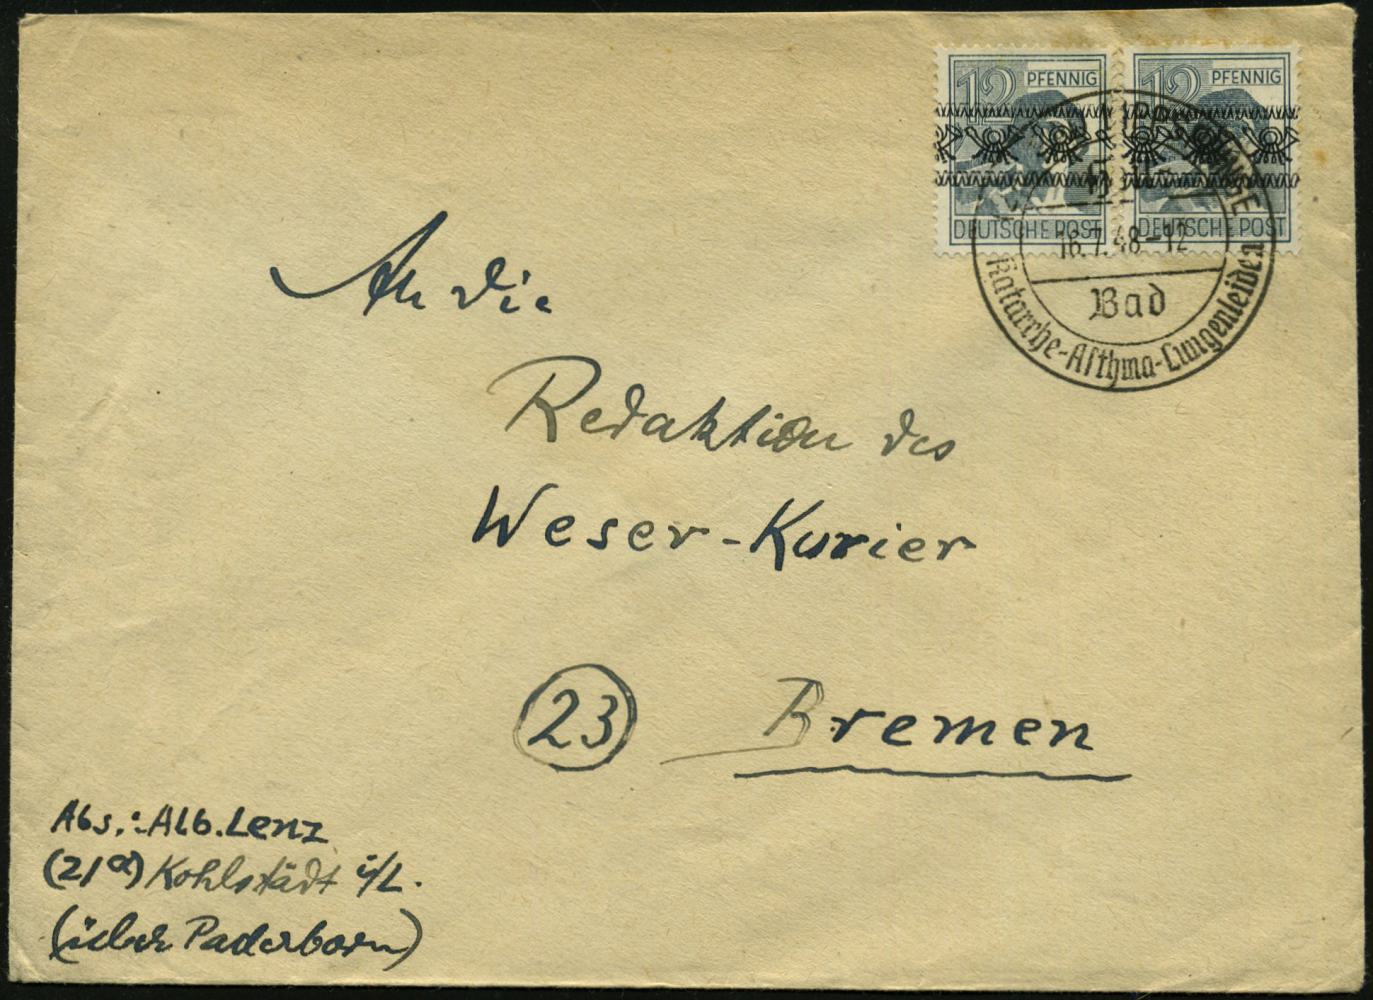 12 PFENNIG 12 PFENNIG
DEUTSCHE POST DEUTSCHE POST
16.7.48-12
Bad
Katarrhe-Asthma-Lungenleiden
An die
Redaktion des
Weser-Kurier
23 Bremen
Abs.: Alb. Lenz
(21a) Kohlstädt i/L.
(über Paderborn)